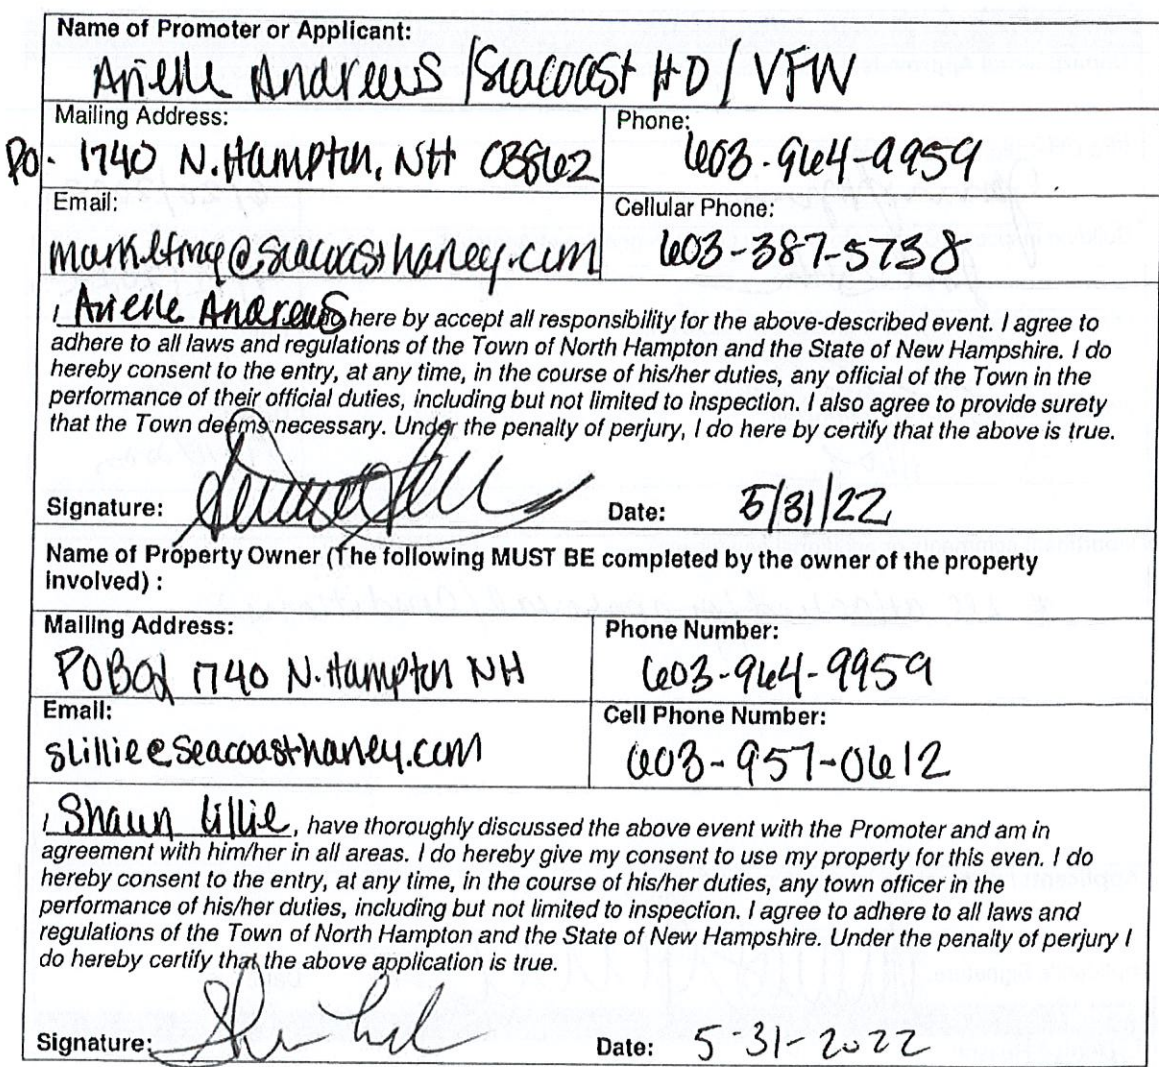 Name of Promoter or Applicant:
Arielle Andrews / Seacoast HD / VFW
Mailing Address:
PO. 1740 N. Hampton, NH 03862
Phone:
603-964-9959
Email:
marketing@seacoastharley.com
Cellular Phone:
603-387-5738
I Arielle Andrews here by accept all responsibility for the above-described event. I agree to
adhere to all laws and regulations of the Town of North Hampton and the State of New Hampshire. I do
hereby consent to the entry, at any time, in the course of his/her duties, any official of the Town in the
performance of their official duties, including but not limited to inspection. I also agree to provide surety
that the Town deems necessary. Under the penalty of perjury, I do here by certify that the above is true.
Signature:
Date: 5/31/22
Name of Property Owner (The following MUST BE completed by the owner of the property
involved) :
Mailing Address:
PO Box 1740 N. Hampton NH
Phone Number:
603-964-9959
Email:
slillie@seacoastharley.com
Cell Phone Number:
603-957-0612
I Shaun Lillie, have thoroughly discussed the above event with the Promoter and am in
agreement with him/her in all areas. I do hereby give my consent to use my property for this even. I do
hereby consent to the entry, at any time, in the course of his/her duties, any town officer in the
performance of his/her duties, including but not limited to inspection. I agree to adhere to all laws and
regulations of the Town of North Hampton and the State of New Hampshire. Under the penalty of perjury I
do hereby certify that the above application is true.
Signature:
Date: 5-31-2022